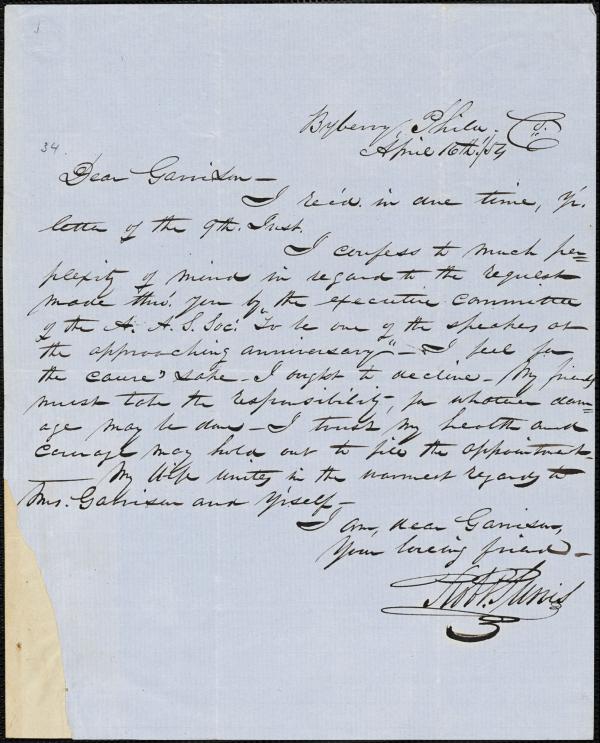 34
Byberry, Phila. Co.
April 16th /54
Dear Garrison—
I rec'd. in due time, Yr.
letter of the 9th. Inst.
I confess to much per=
plexity of mind in regard to the request
made thro' you by the executive committee
of the A. A. S. Soc: "To be one of the speakers at
the approaching anniversary"— I feel for
the cause's sake— I ought to decline— My friends
must take the responsibility, for whatever dam=
age may be done— I trust my health and
courage may hold out to fill the appointment—
My Wife unites in the warmest regards to
Mrs. Garrison and Y'rself—
I am, dear Garrison,
Your loving friend—
Robt. Purvis